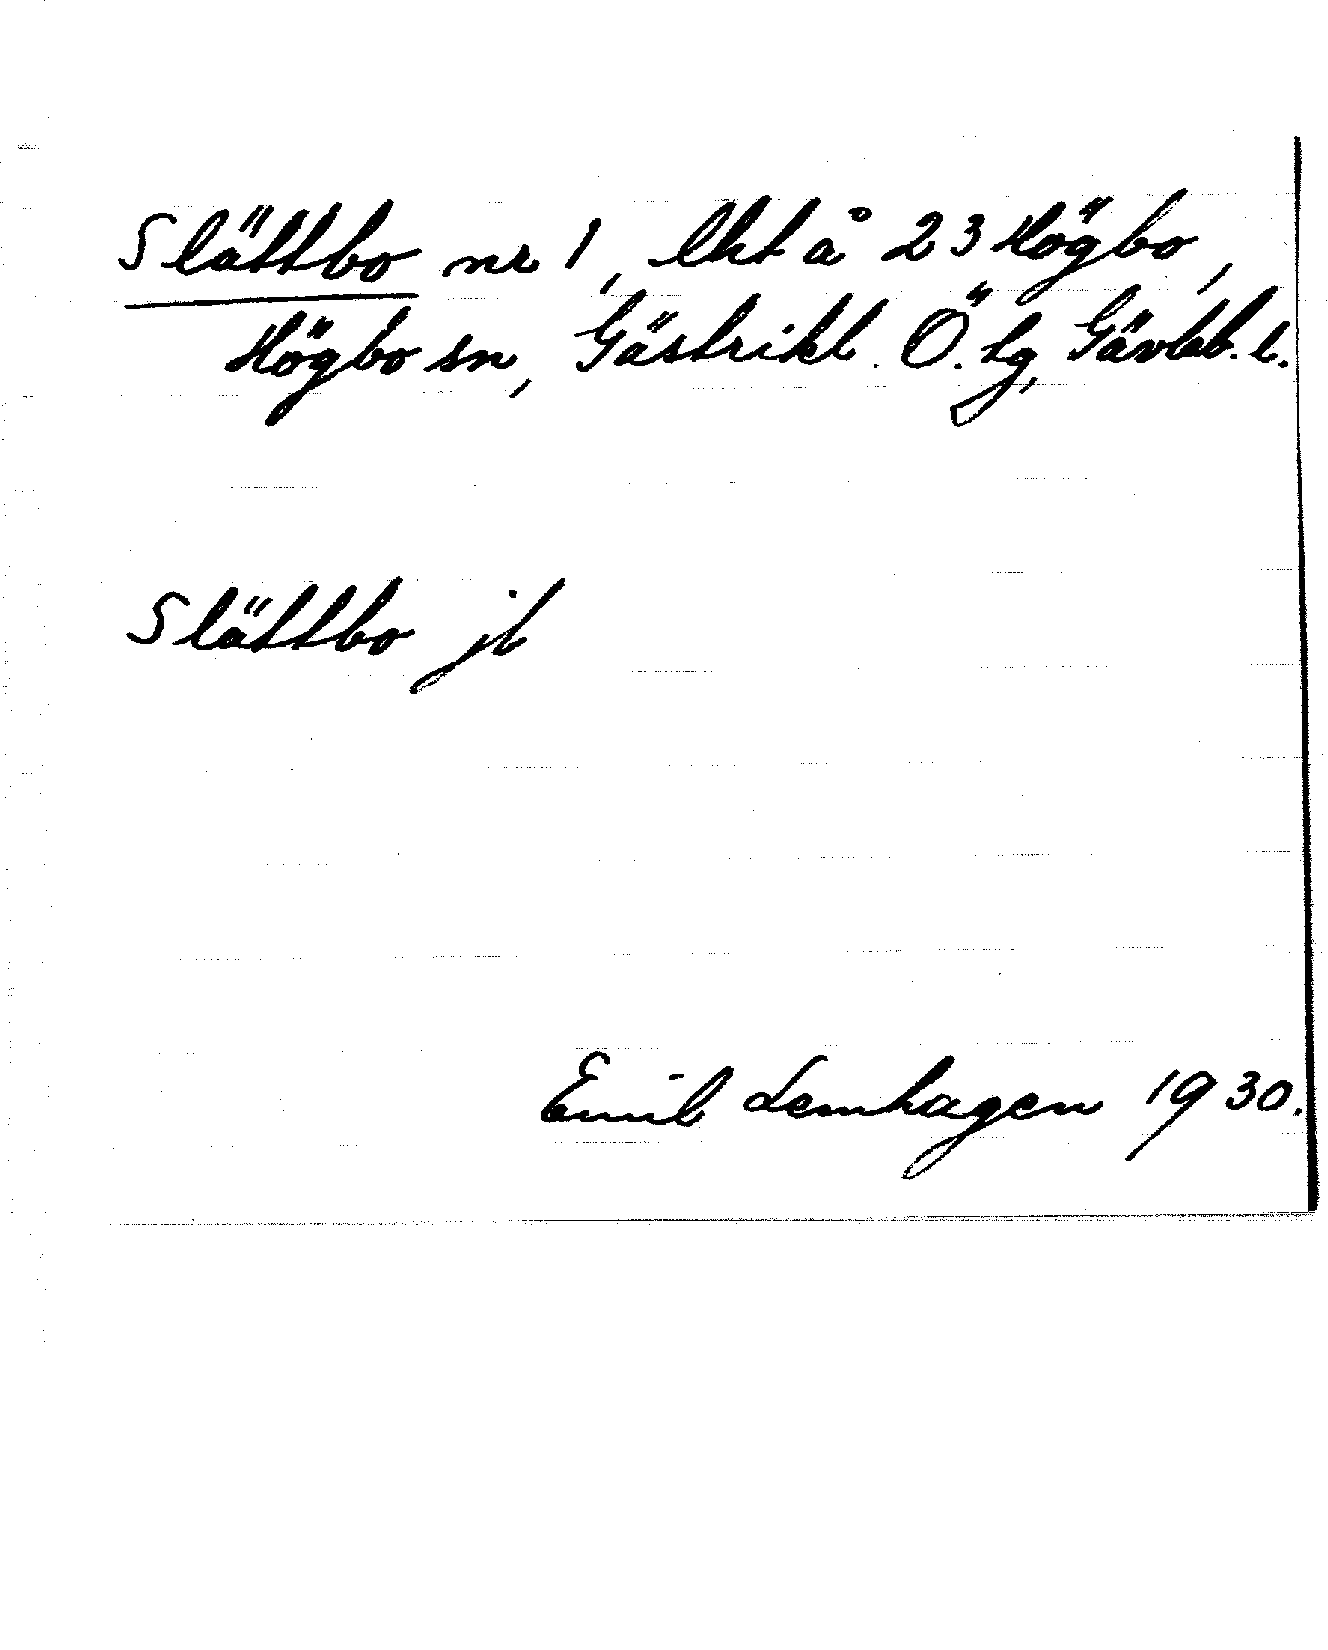 Slättbo nr 1, lht å 23 Högbo,
Högbo sn, Gästrikl. Ö. tg, Gävleb. l.
Slättbo jb
Emil Lemhagen 1930.